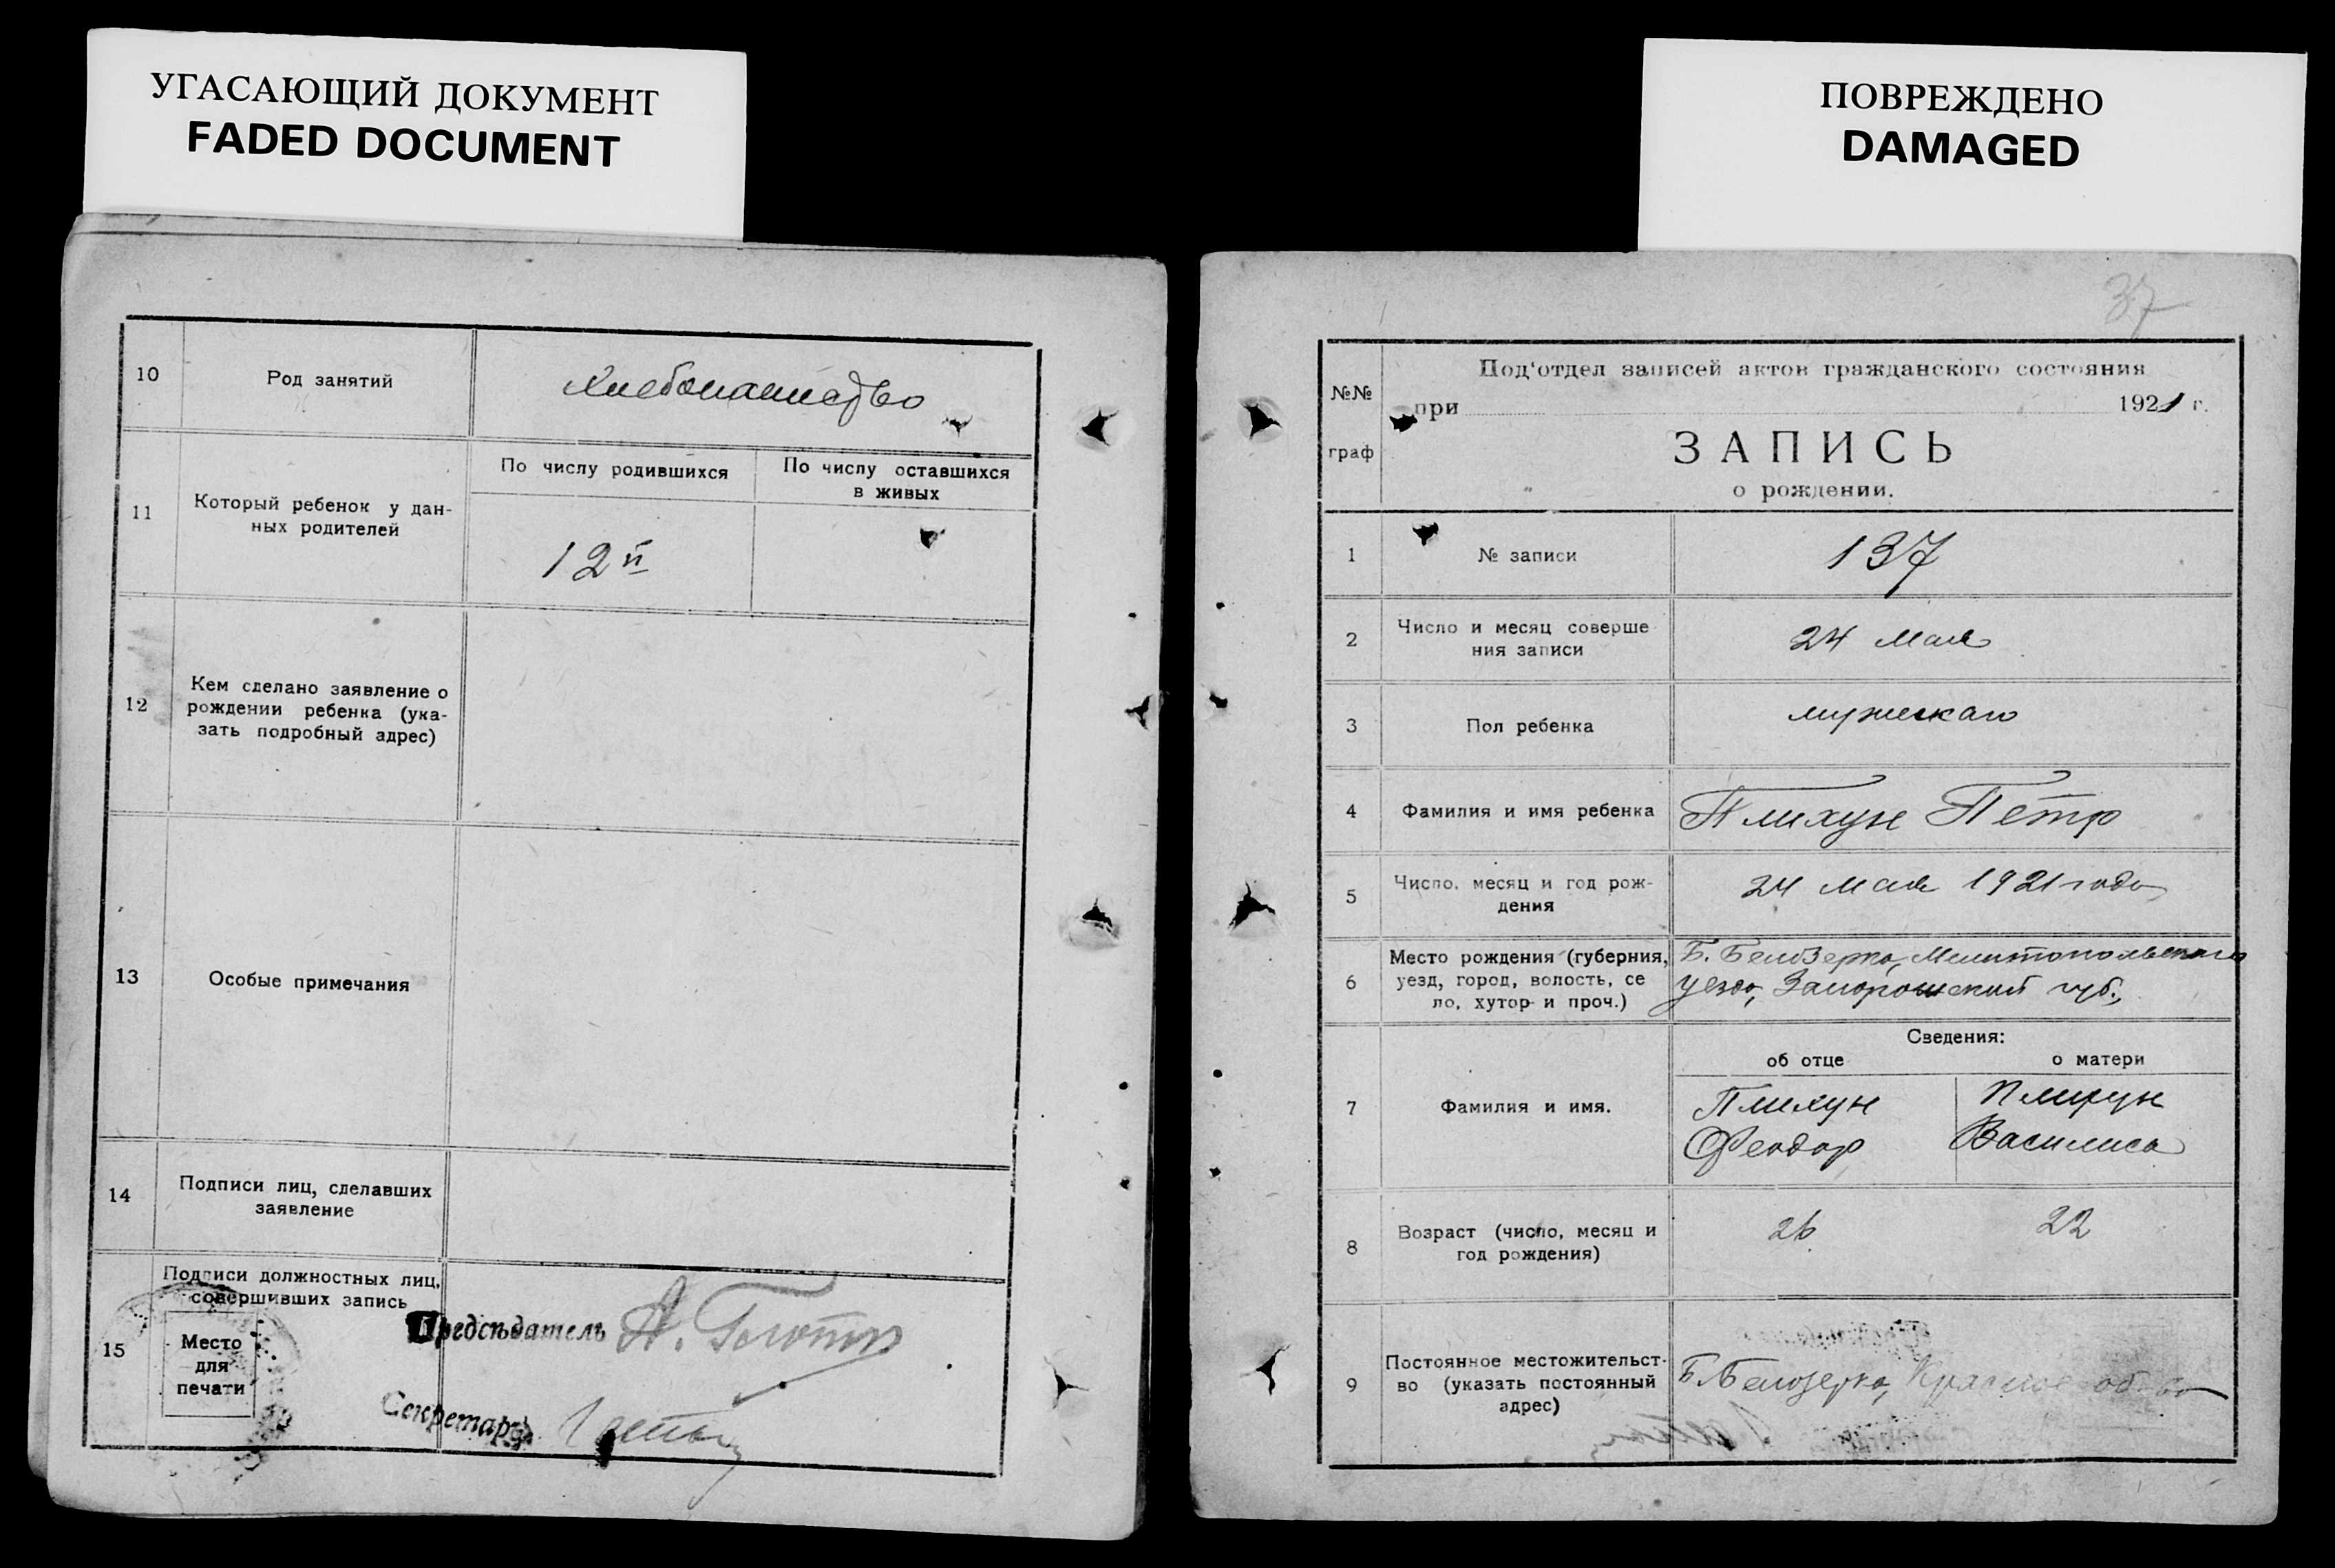 УГАСАЮЩИЙ ДОКУМЕНТ
FADED DOCUMENT
10
Род занятий
Хлебопашество
11
Который ребенок у дан-
ных родителей
По числу родившихся
По числу оставшихся
в живых
12й
12
Кем сделано заявление о
рождении ребенка (ука-
зать подробный адрес)
13
Особые примечания
14
Подписи лиц, сделавших
заявление
15
Подписи должностных лиц,
совершивших запись
Место
для
печати
Председатель А.
Секретарь
ПОВРЕЖДЕНО
DAMAGED
37
№№
граф
Под'отдел записей актов гражданского состояния
при 1921 г.
ЗАПИСЬ
о рождении.
1
№ записи
137
2
Число и месяц соверше
ния записи
24 мая
3
Пол ребенка
мужскаго
4
Фамилия и имя ребенка
Плихун Петр
5
Число, месяц и год рож-
дения
24 мая 1921 года
6
Место рождения (губерния,
уезд, город, волость, се
ло, хутор и проч.)
Б. Белозерка, Мелитопольскаго
уезда, Запорожской губ.,
Сведения:
об отце
о матери
7
Фамилия и имя.
Плихун
Феодор
Плихун
Василиса
8
Возраст (число, месяц и
год рождения)
26
22
9
Постоянное местожительст-
во (указать постоянный
адрес)
Б. Белозерка, Красное об-во